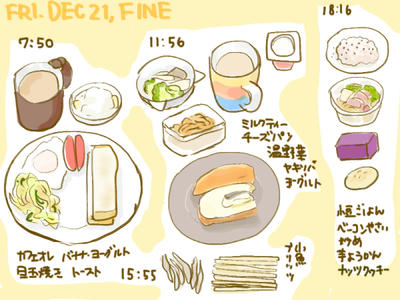 FRI. DEC 21, FINE
7:50
カフェオレ バナナヨーグルト
目玉焼き トースト
11:56
ミルクティー
チーズパン
温野菜
ヤキソバ
ヨーグルト
15:55
小魚
プリッツ
18:16
小豆ごはん
ベーコンやさい
炒め
芋ようかん
ナッツクッキー